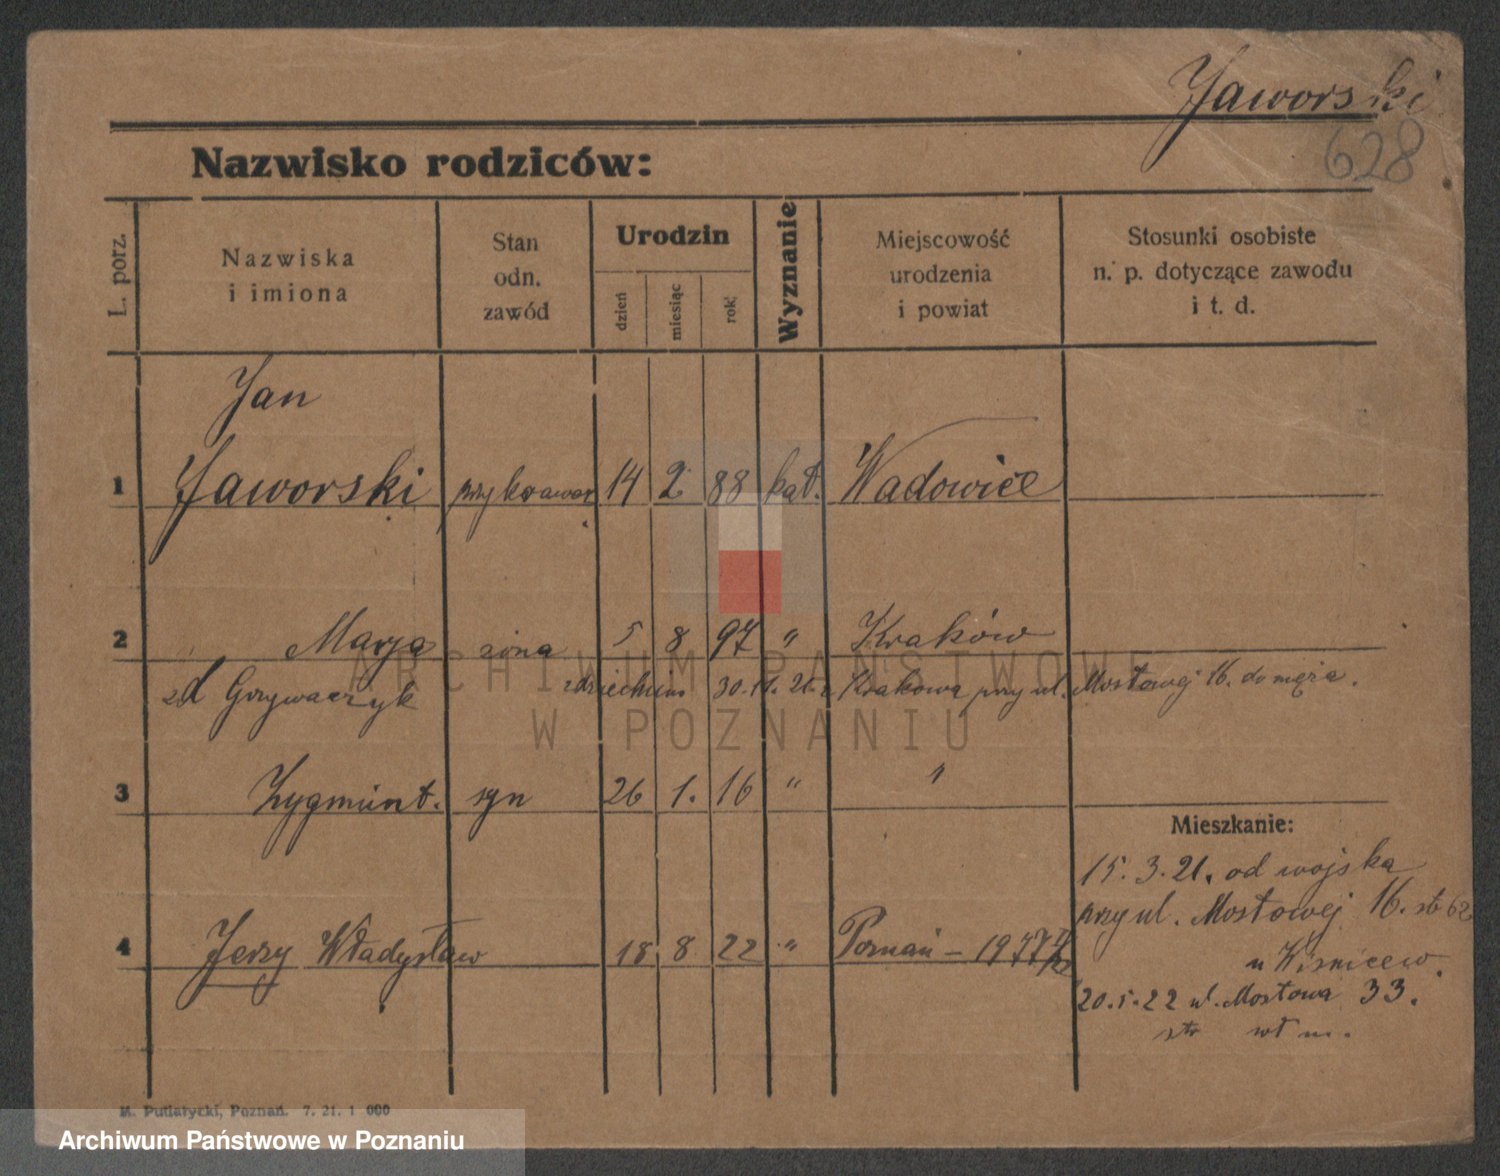 Jaworski
628
Nazwisko rodziców:
L. porz.
Nazwiska
i imiona
Stan
odn.
zawód
Urodzin
dzień
miesiąc
rok
Wyznanie
Miejscowość
urodzenia
i powiat
Stosunki osobiste
n. p. dotyczące zawodu
i t. d.
Jan
1 Jaworski przykrawacz 14 2 88 kat. Wadowice
2 Marja żona 5 8 97 " Kraków
zd Grzywaczyk 30.11.21. z Krakowa przy ul. Mostowej 16. do męża.
3 Zygmunt. syn 26 1. 16 " "
Mieszkanie:
15.3.21. od wojska
przy ul. Mostowej 16.
u
4 Jerzy Władysław 18 8 22 " Poznań –
20.5.22 ul. Mostowa 33.
M. Putiatycki, Poznań. 7. 21. 1 000
ARCHIWUM PAŃSTWOWE
W POZNANIU
Archiwum Państwowe w Poznaniu